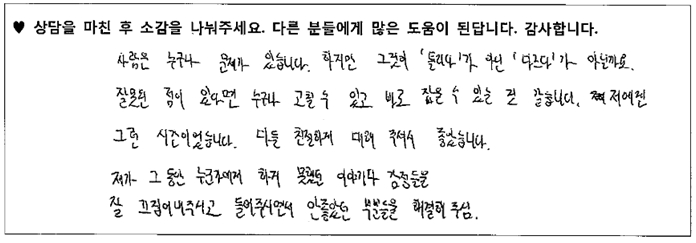 ♥ 상담을 마친 후 소감을 나눠주세요. 다른 분들에게 많은 도움이 된답니다. 감사합니다.
사람은 누구나 문제가 있습니다. 하지만 그것이 '틀리다'가 아닌 '다르다'가 아닐까요.
잘못된 점이 있다면 누구나 고칠 수 있고 바로 잡을 수 있는 것 같습니다. 저에겐
그런 시간이었습니다. 다들 친절하게 대해 주셔서 좋았습니다.
제가 그 동안 누군가에게 하지 못했던 이야기나 감정들을
잘 끄집어내주시고 들어주시면서 안좋았던 부분들을 해결해 주심.